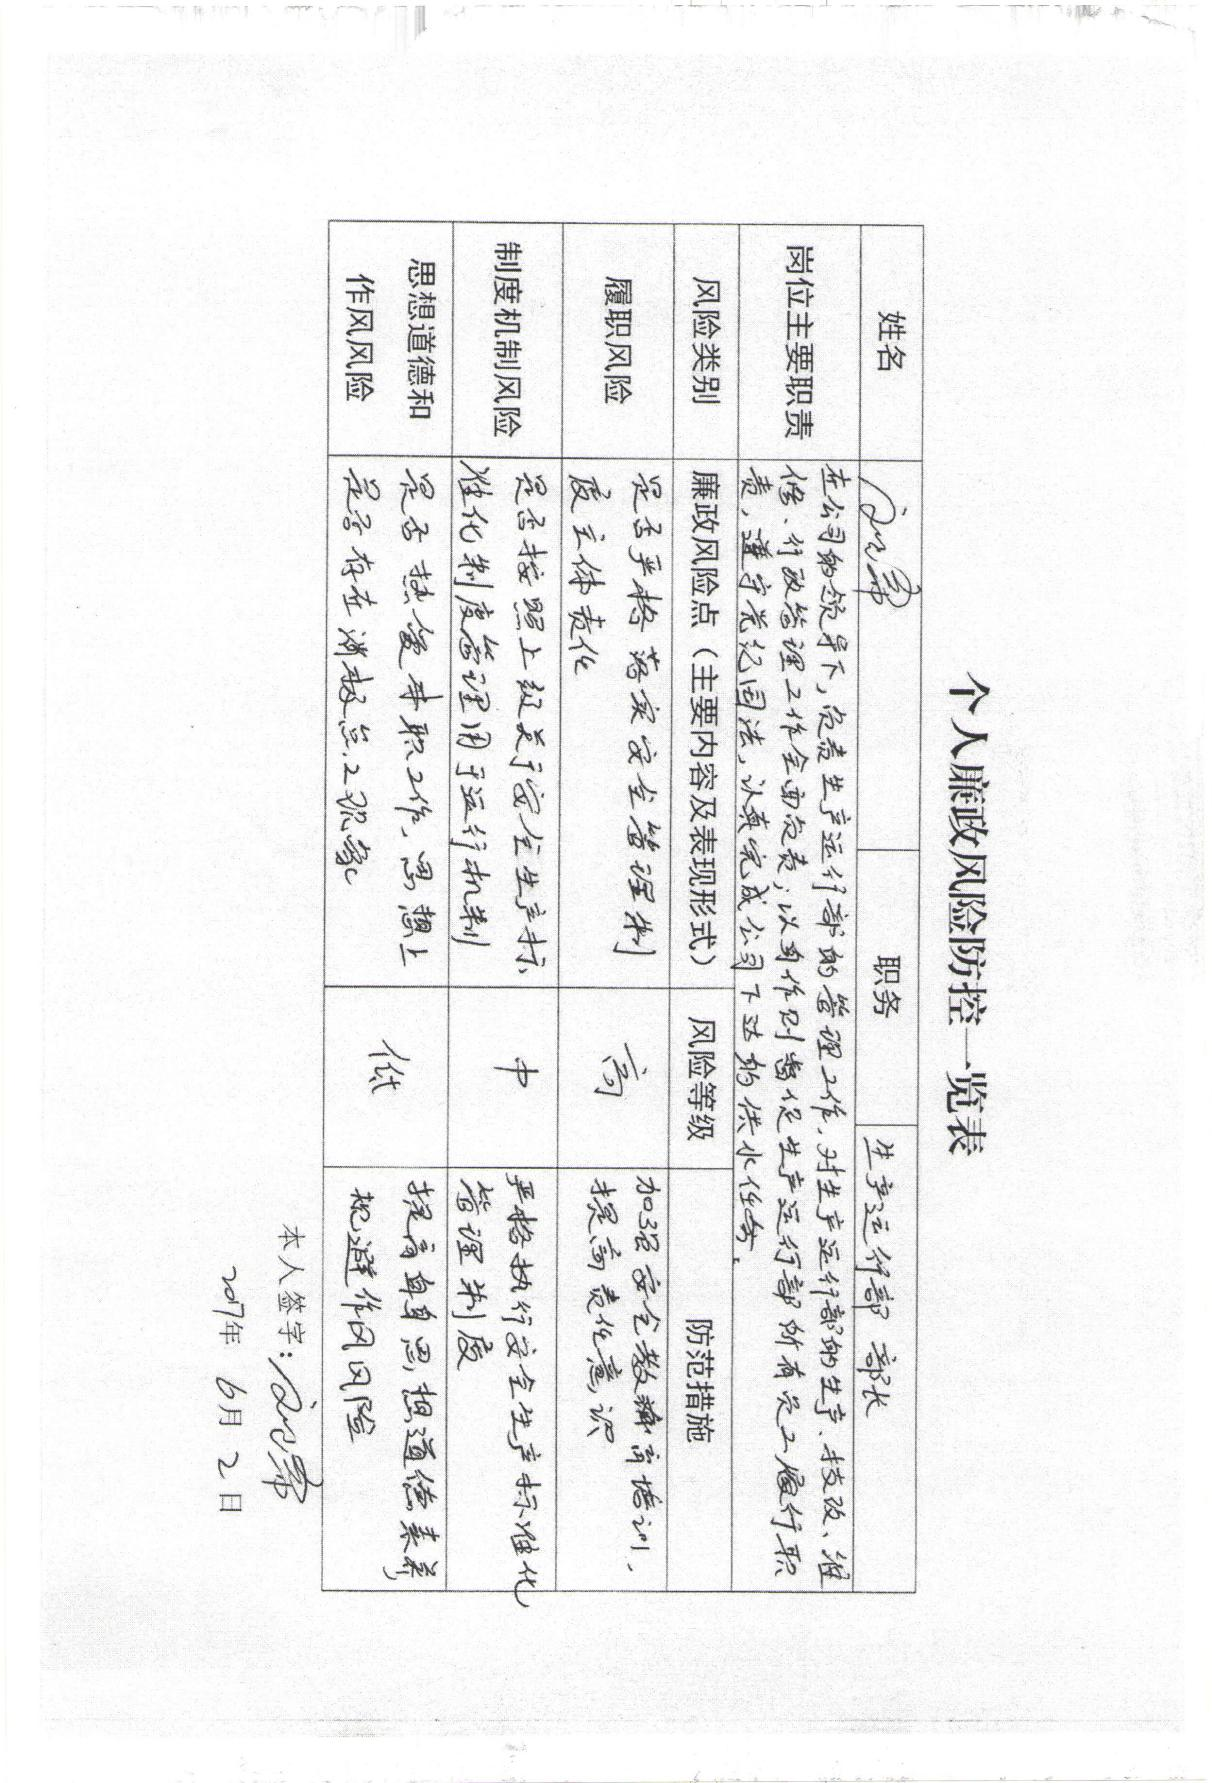 个人廉政风险防控一览表
姓名
职务
生产运行部 部长
岗位主要职责
在公司的领导下，负责生产运行部的管理工作，对生产运行部的生产、技改、维
修、行政管理工作全面负责；以身作则督促生产运行部所有员工履行职
责，遵守党纪国法，认真完成公司下达的供水任务。
风险类别
廉政风险点（主要内容及表现形式）
风险等级
防范措施
履职风险
是否严格落实安全管理制
度主体责任
高
加强安全教育培训，
提高责任意识
制度机制风险
是否按照上级关于安全生产标
准化制度管理用于运行机制
中
严格执行安全生产标准化
管理制度
思想道德和
作风风险
是否热爱本职工作，思想上
是否存在消极怠工现象
低
提高自身思想道德素养，
规避作风风险
本人签字：
2017年 6月 2日